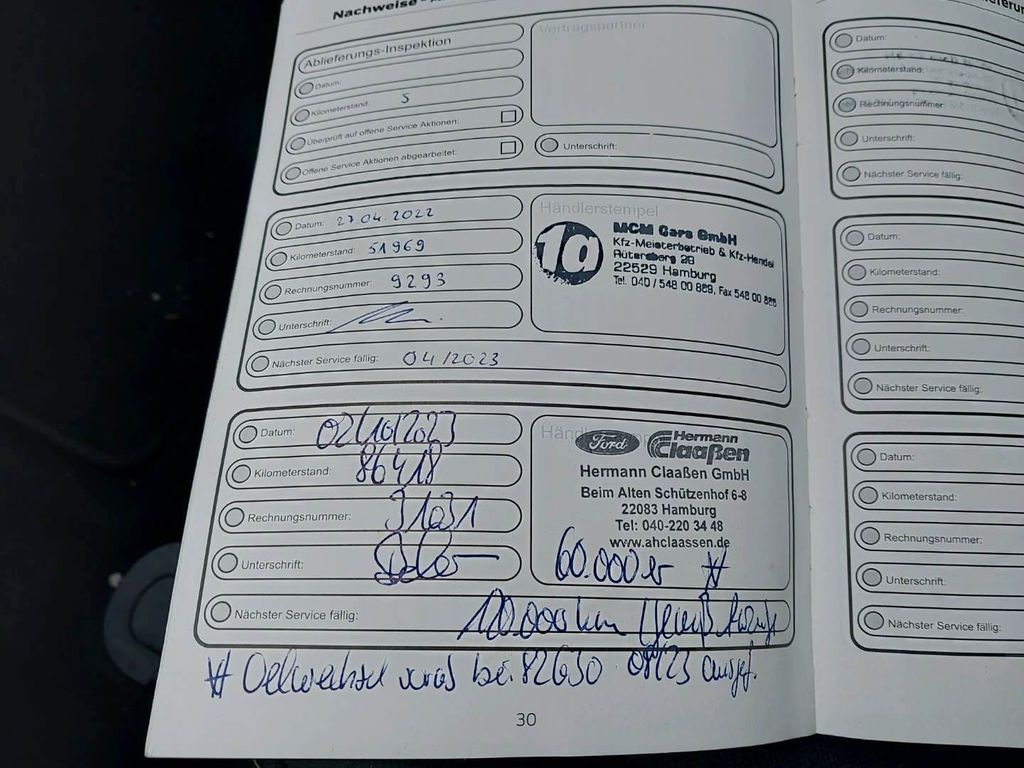 Nachweise
Ablieferungs-Inspektion
Vertragspartner
Datum:
Kilometerstand: 5
Überprüft auf offene Service Aktionen:
Offene Service Aktionen abgearbeitet:
Unterschrift:
Datum: 27.04.2022
Kilometerstand: 51969
Rechnungsnummer: 9293
Unterschrift:
Nächster Service fällig: 04/2023
Händlerstempel
1a
MCM Cars GmbH
Kfz-Meisterbetrieb & Kfz-Handel
Rütersberg
22529 Hamburg
Tel. 040 / 548 00 888, Fax 548 00
Datum: 02/10/2023
Kilometerstand: 86418
Rechnungsnummer: 31631
Unterschrift:
Nächster Service fällig: 100.000 km
Ford
Hermann
Claaßen
Hermann Claaßen GmbH
Beim Alten Schützenhof 6-8
22083 Hamburg
Tel: 040-220 34 48
www.ahclaassen.de
60.000er #
# Oelwechsel wird bei 82630 08/23 ausgef.
30
Datum:
Kilometerstand:
Rechnungsnummer:
Unterschrift:
Nächster Service fällig:
Datum:
Kilometerstand:
Rechnungsnummer:
Unterschrift:
Nächster Service fällig:
Datum:
Kilometerstand:
Rechnungsnummer:
Unterschrift:
Nächster Service fällig: